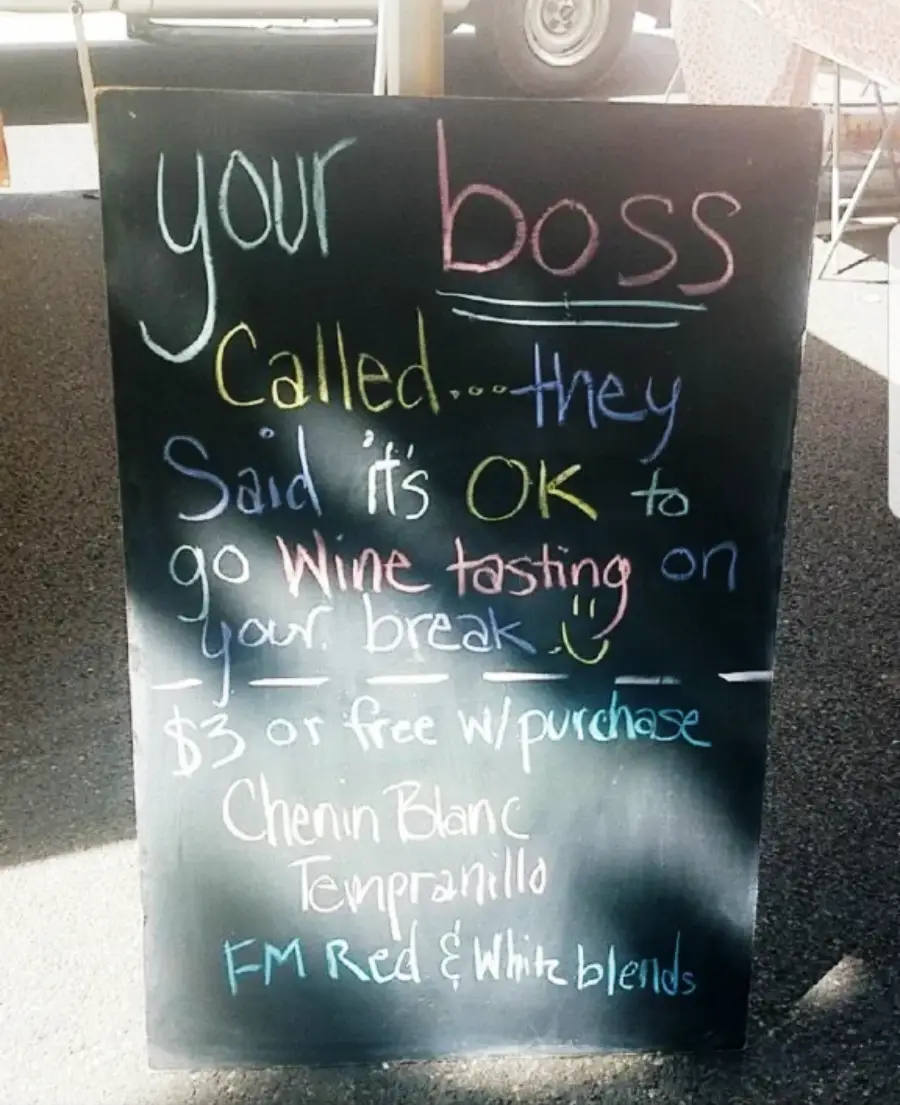 your boss
Called...they
Said it's OK to
go Wine tasting on
your break
$3 or free w/purchase
Chenin Blanc
Tempranillo
FM Red & White blends